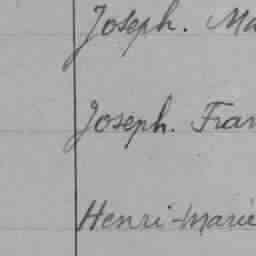 Joseph. Ma
Joseph. Fran
Henri-Marie